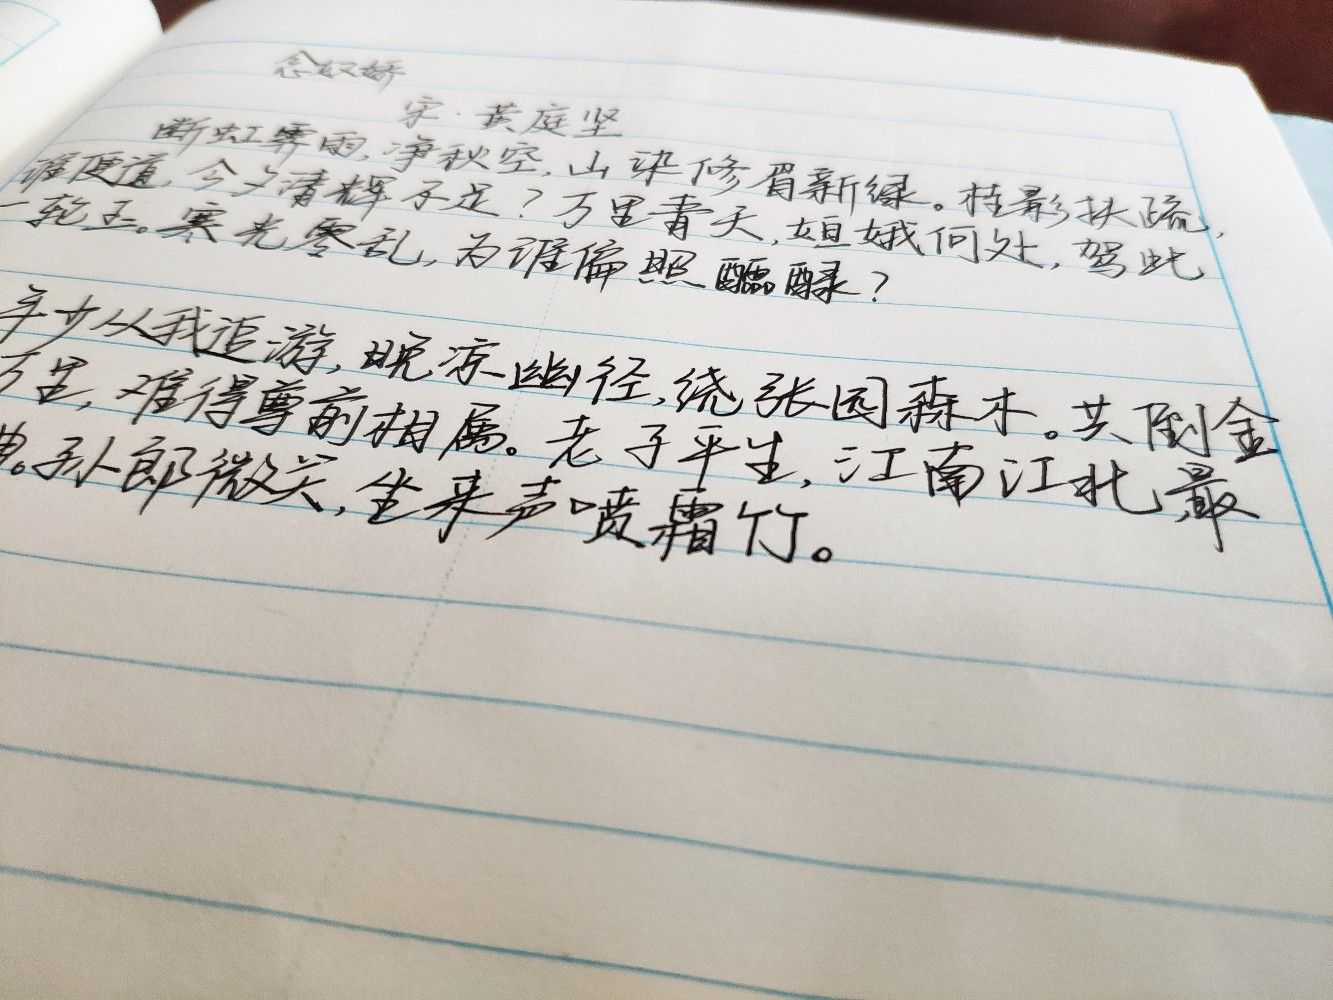 念奴娇
宋·黄庭坚
断虹霁雨,净秋空,山染修眉新绿。桂影扶疏,
谁便道,今夕清辉不足?万里青天,姮娥何处,驾此
一轮玉。寒光零乱,为谁偏照醽醁?
年少从我追游,晚凉幽径,绕张园森木。共倒金
万里,难得尊前相属。老子平生,江南江北,最
曲。孙郎微笑,坐来声喷霜竹。